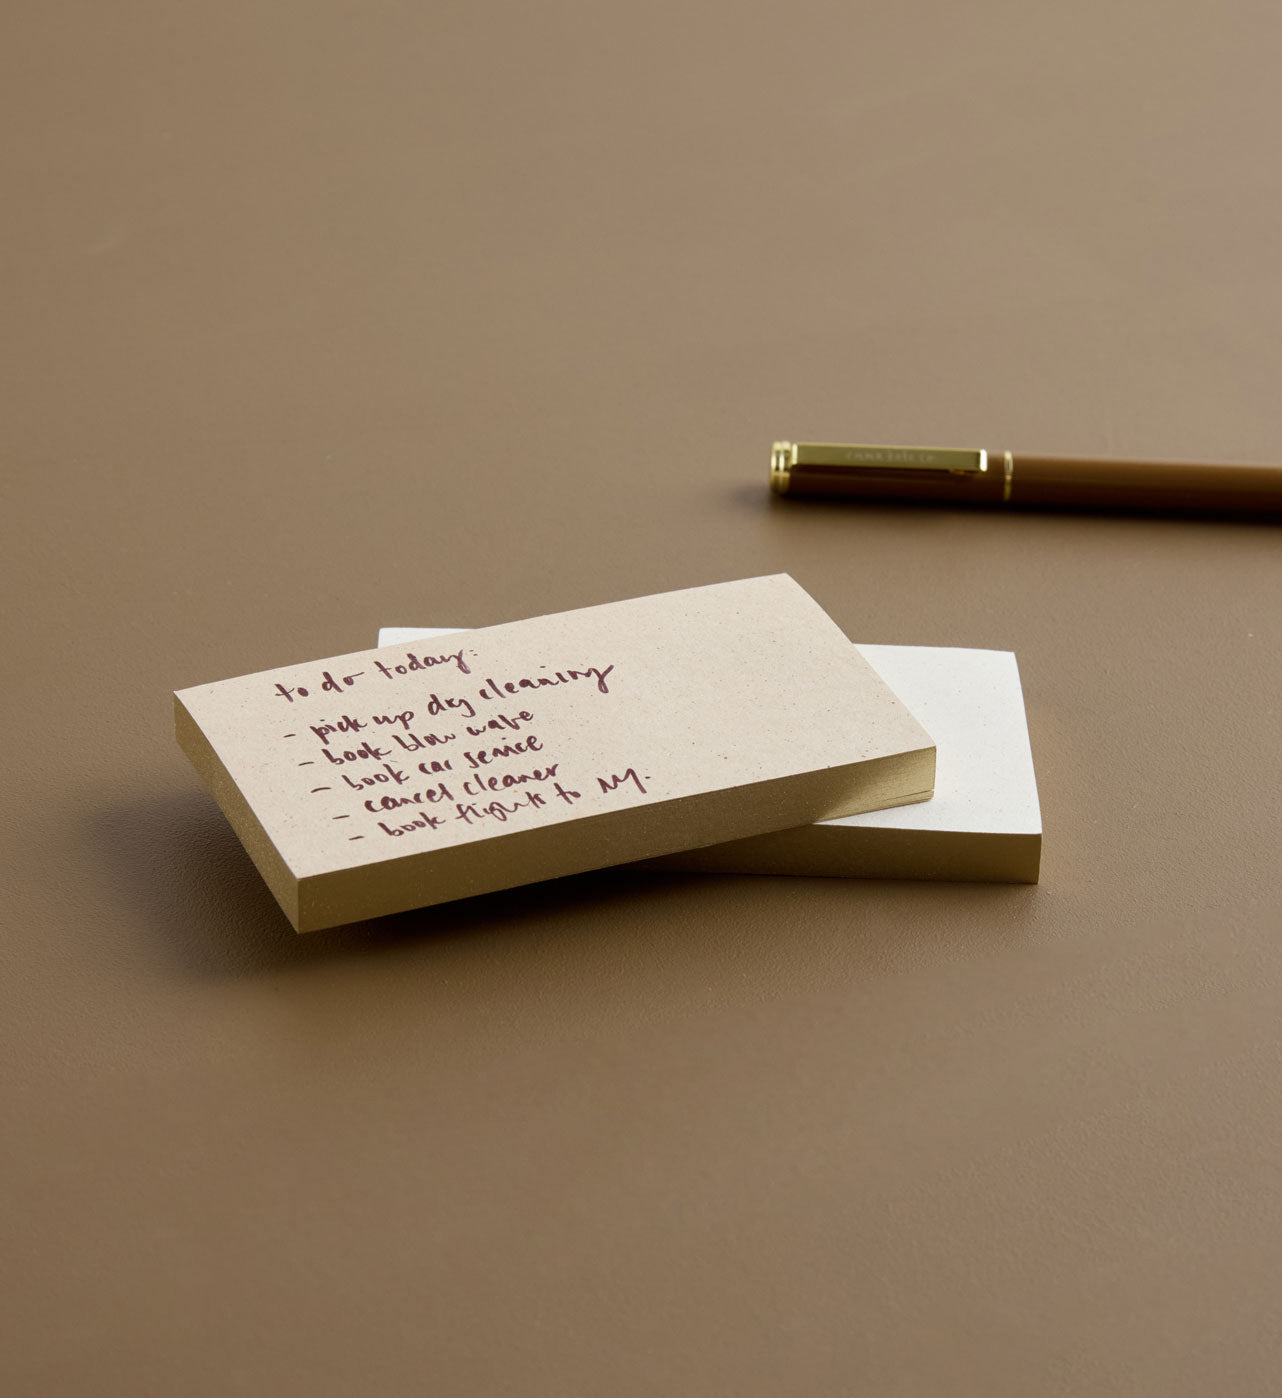 to do today:
- pick up dry cleaning
- book blow wave
- book car service
- cancel cleaner
- book flights to NY.